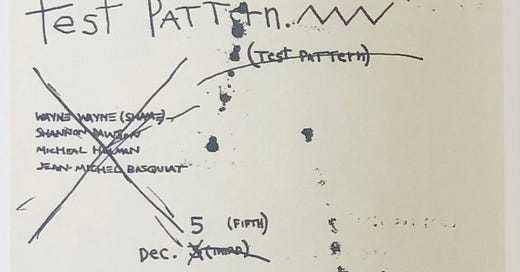 Test PATTern.
(Test PATTern)
WAYNE WAYNE (SHAME)
SHANNON DAWSON
MICHEAL HOLMAN
JEAN-MICHEL BASQUIAT
5 (FIFTH)
DEC. 3 (THIRD)